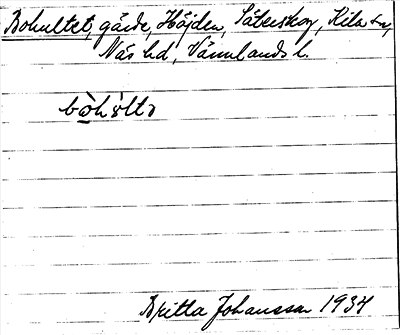 Bohultet, gärde, Höjden, Säterskog, Kila sn,
Näs hd, Värmlands l.
Britta Johansson 1934